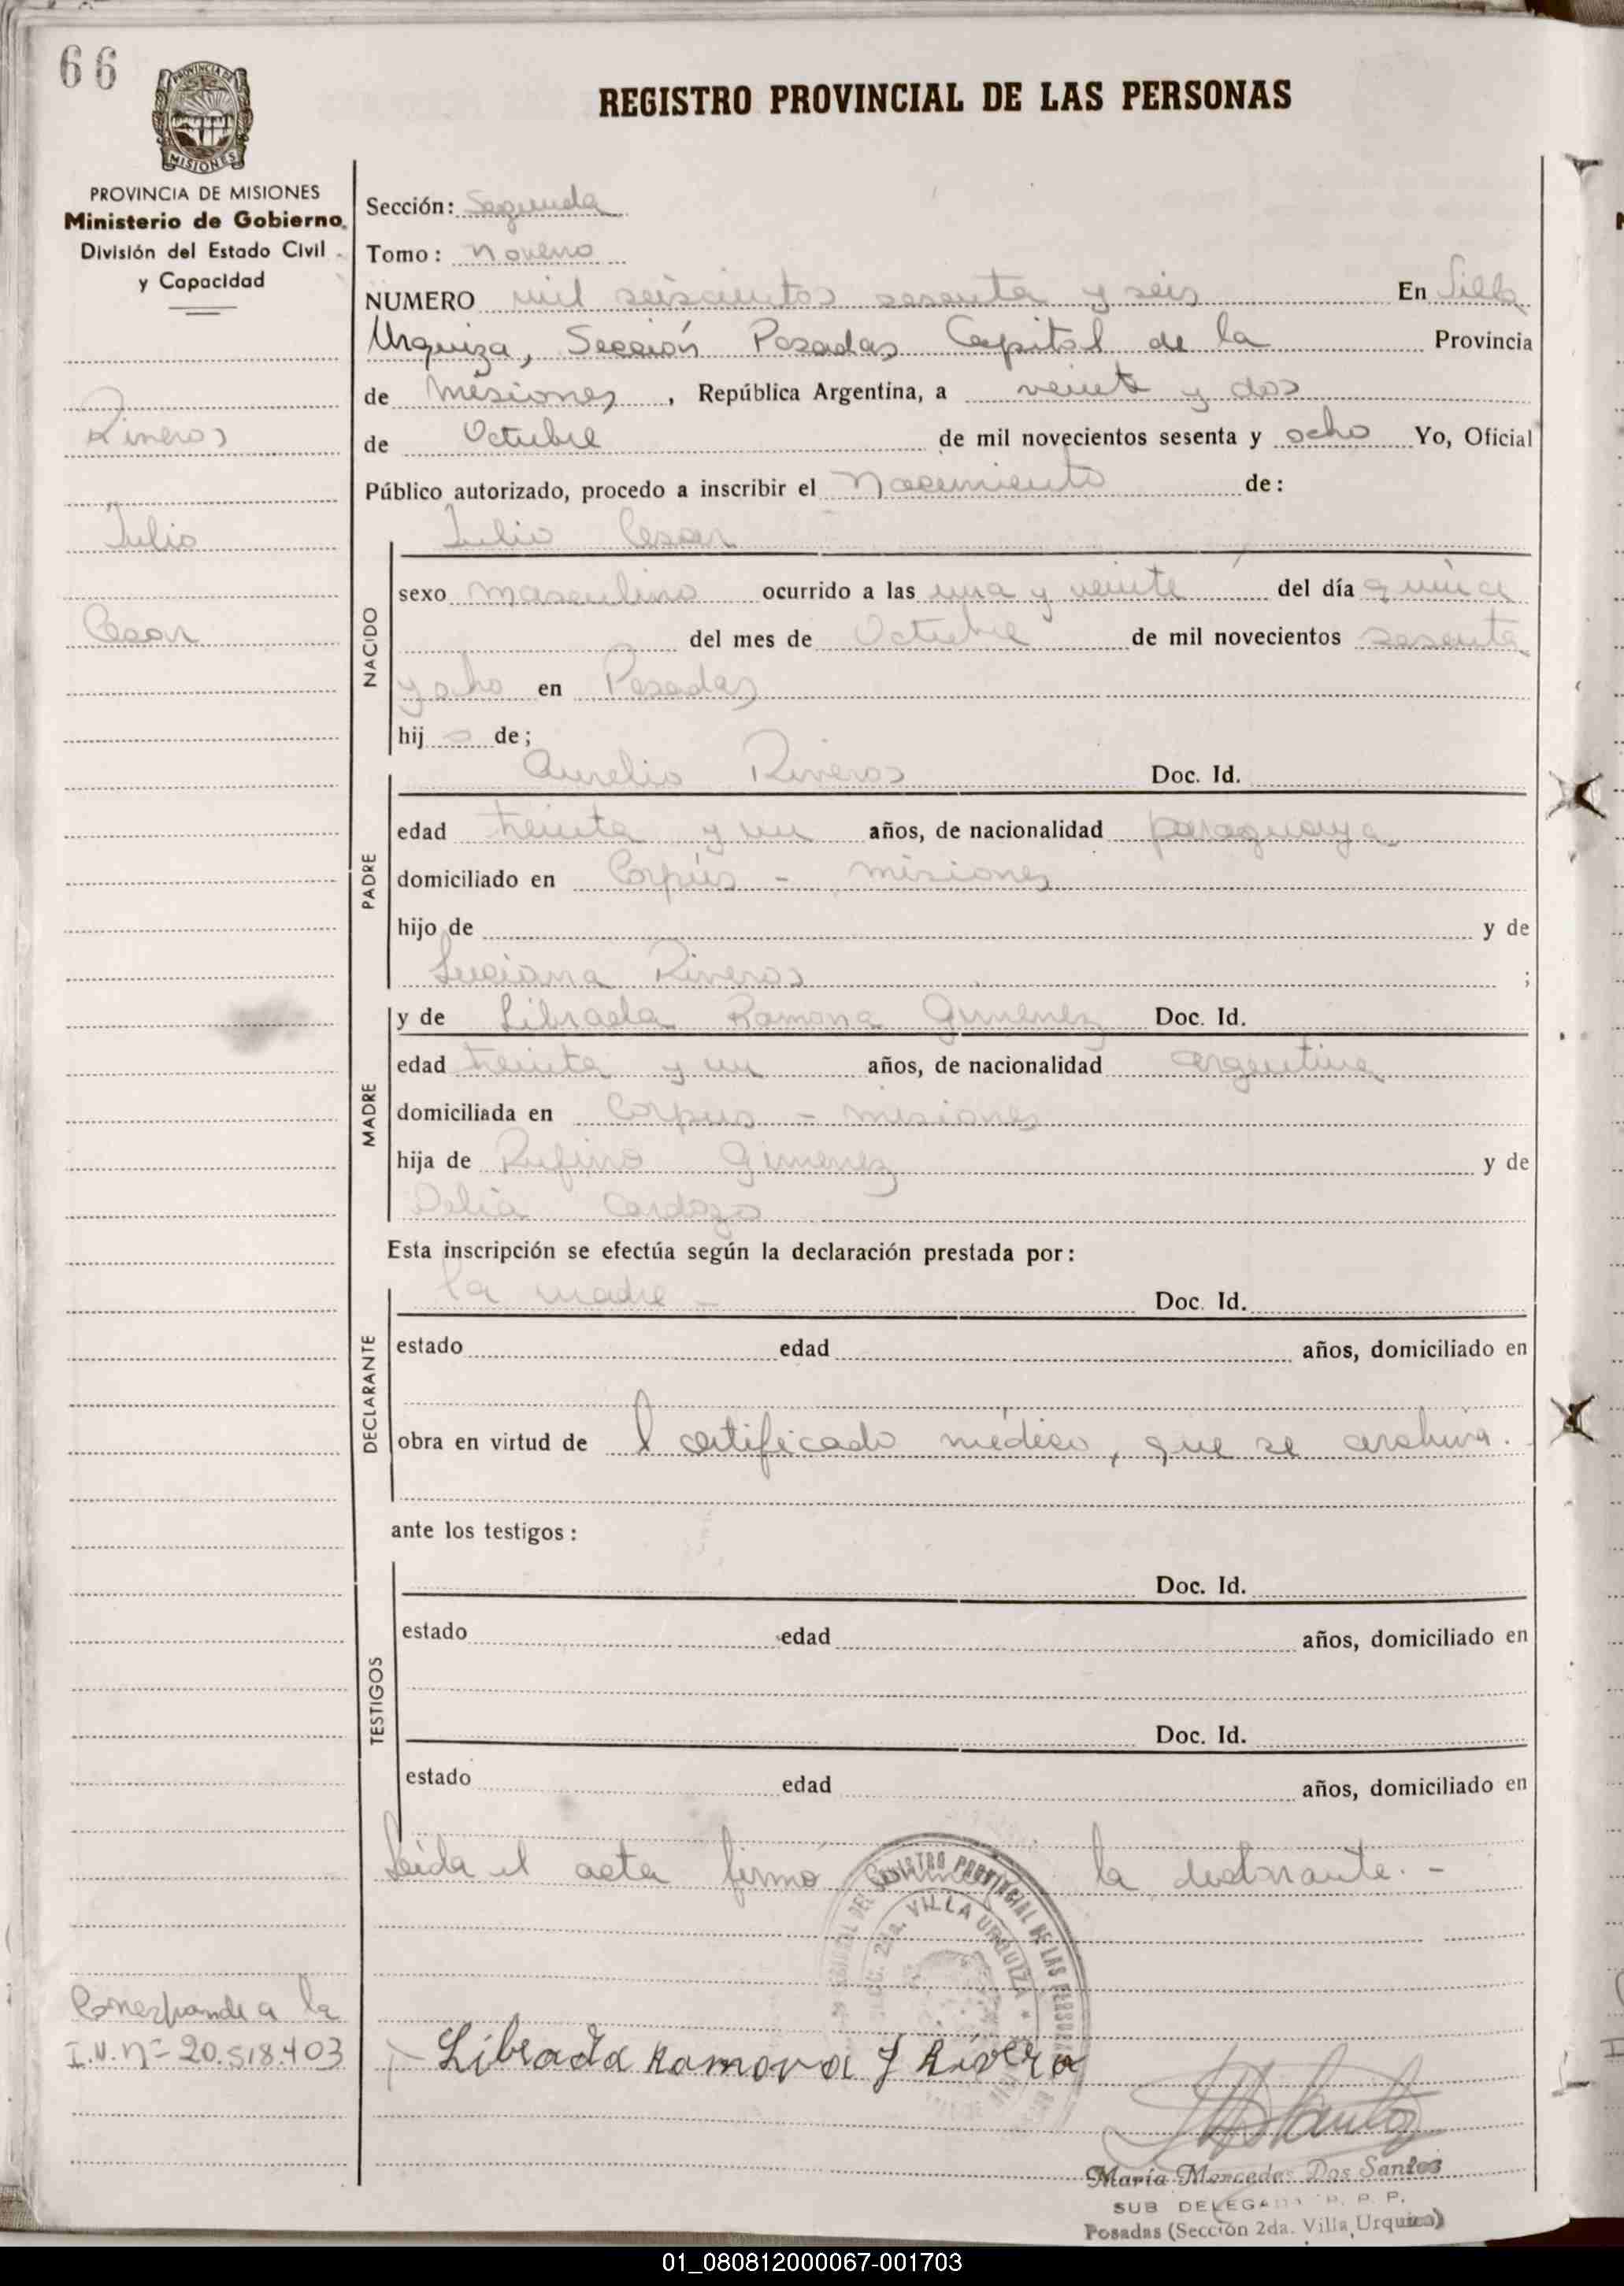 66
PROVINCIA DE
MISIONES
REGISTRO PROVINCIAL DE LAS PERSONAS
PROVINCIA DE MISIONES
Ministerio de Gobierno
División del Estado Civil
y Capacidad
Sección: Segunda
Tomo: Noveno
NUMERO mil seiscientos sesenta y seis En Villa
Urquiza, Sección Posadas Capital de la Provincia
de Misiones, República Argentina, a veinte y dos
de Octubre de mil novecientos sesenta y ocho Yo, Oficial
Público autorizado, procedo a inscribir el Nacimiento de:
Riveros
Julio
Cesar
NACIDO
Julio Cesar
sexo masculino ocurrido a las una y veinte del día quince
del mes de Octubre de mil novecientos sesenta
y ocho en Posadas
hijo de;
PADRE
Aurelio Riveros Doc. Id.
edad treinta y un años, de nacionalidad paraguaya
domiciliado en Corpús - misiones
hijo de y de
Luciana Riveros ;
MADRE
y de Librada Ramona Gimenez Doc. Id.
edad treinta y un años, de nacionalidad argentina
domiciliada en Corpus - misiones
hija de Rufino Gimenez y de
Delia Cardozo
Esta inscripción se efectúa según la declaración prestada por:
DECLARANTE
la madre - Doc. Id.
estado edad años, domiciliado en
obra en virtud de l certificado médico, que se archiva.
ante los testigos:
TESTIGOS
Doc. Id.
estado edad años, domiciliado en
Doc. Id.
estado edad años, domiciliado en
Leida el acta firmó la declarante. -
REGISTRO PROVINCIAL DE LAS PERSONAS
VILLA URQUIZA
Corresponde a la
I.N. nº 20.518.403
Librada Ramona J Rivera
María Mercedes Dos Santos
SUB DELEGADA R. P. P.
Posadas (Sección 2da. Villa Urquiza)
01_080812000067-001703